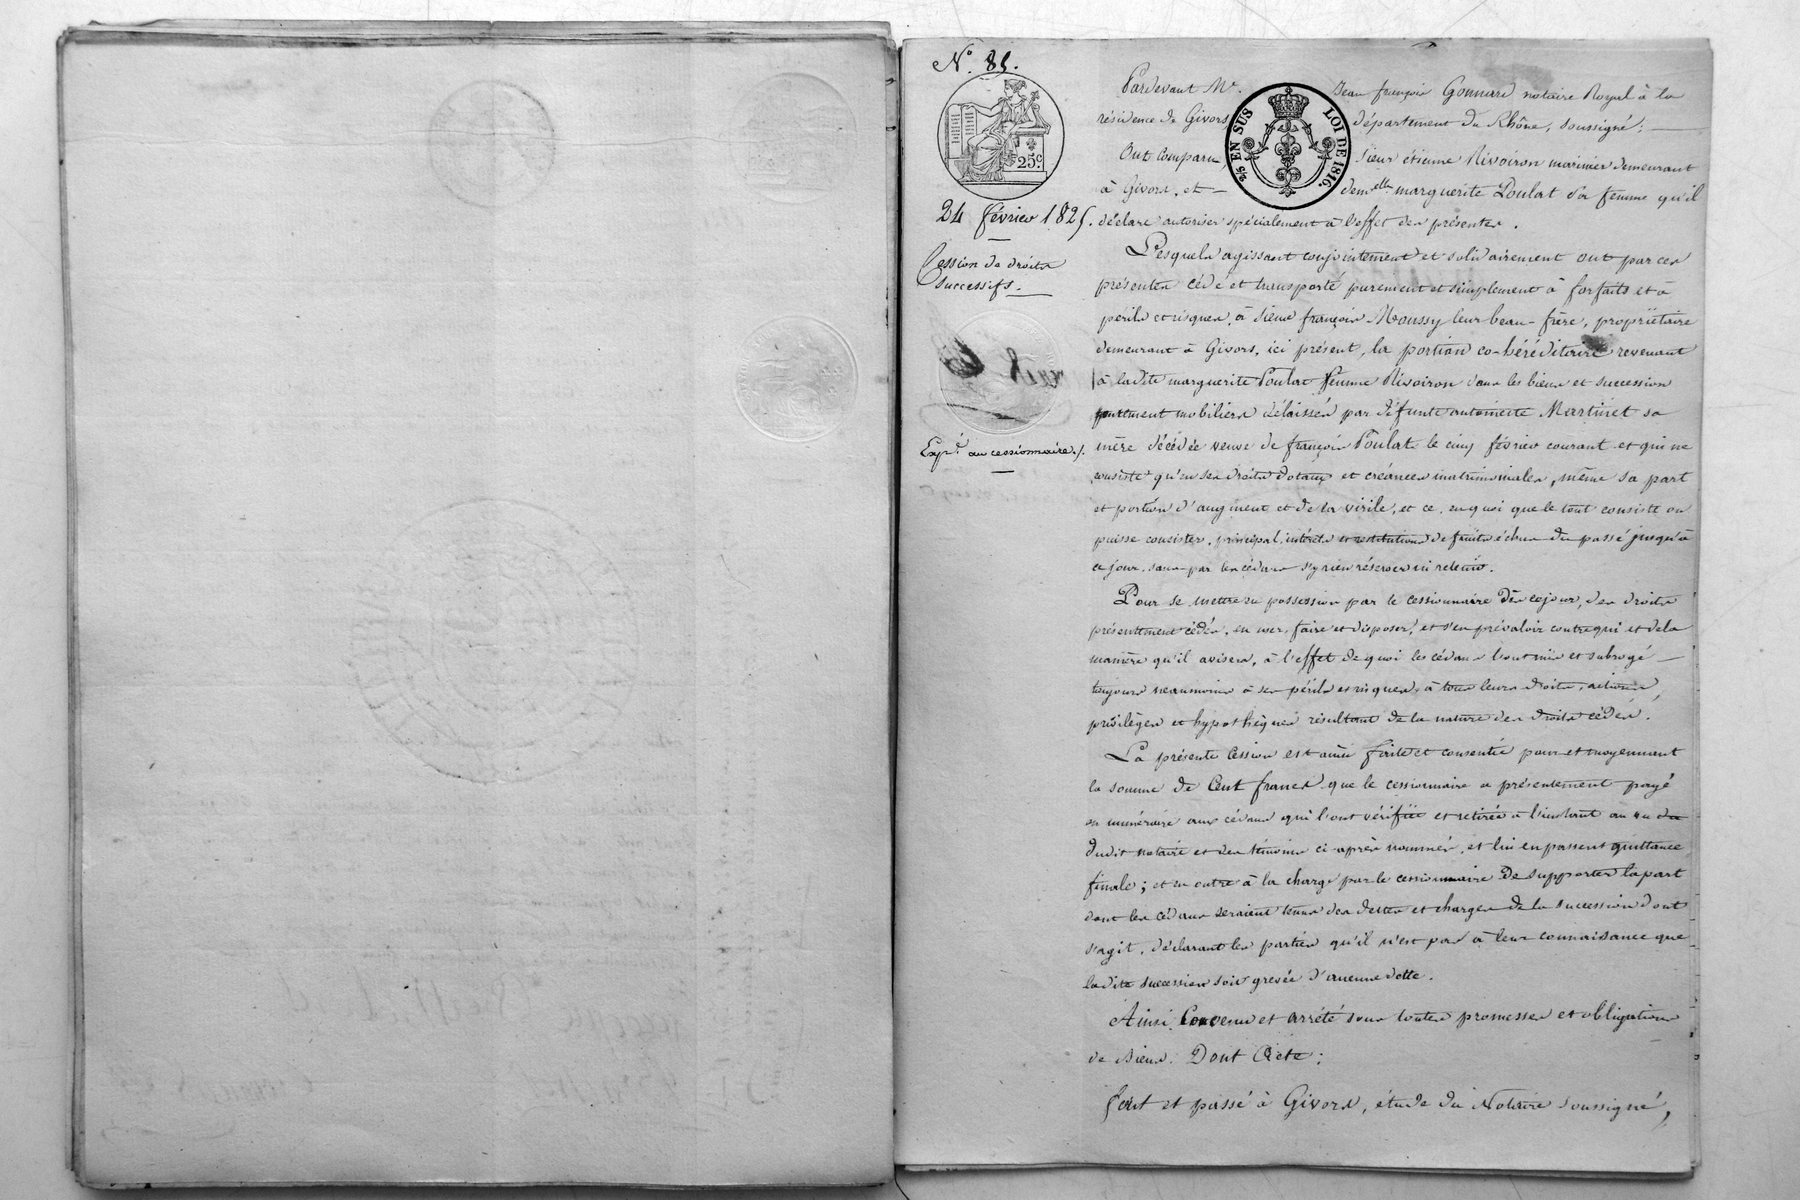 N.° 85.
25c.
24 février 1825.
Cession de droits
successifs.
Exp.on au cessionnaire./.
25 EN SUS LOI DE 1816.
Pardevant Me. Jean françois Gonnard notaire Royal à la
résidence de Givors département du Rhône, soussigné:
Ont comparu sieur étienne Rivoiron marinier demeurant
à Givors, et demelle marguerite Poulat sa femme qu'il
déclare autoriser spécialement à l'effet des présentes.
Lesquels agissant conjointement et solidairement ont par ces
présentes cédé et transporté purement et simplement à forfaits et à
périls et risques, à sieur françois Moussy leur beau-frère, propriétaire
demeurant à Givors, ici présent, la portion co-héréditaire revenant
à ladite marguerite Poulat femme Rivoiron dans les biens et succession
purement mobiliers délaissés par défunte antoinette Martinet sa
mère décédée veuve de françois Poulat le cinq février courant et qui ne
consiste qu'en ses droits dotaux et créances matrimoniales, même sa part
et portion d'augment et de la virile, et ce, en quoi que le tout consiste ou
puisse consister, principal, intérêts et restitutions de fruits échus du passé jusqu'à
ce jour, sans par les cédans s'y rien réserver ni retenir.
Pour se mettre en possession par le cessionnaire dès cejour, des droits
présentement cédés, en user, faire et disposer, et s'en prévaloir contre qui et dela
manière qu'il avisera, à l'effet de quoi les cédans l'ont mis et subrogé
toujours néanmoins à ses périls et risques, à tous leurs droits, actions,
privilèges et hypothèques résultant de la nature des droits cédés.
La présente Cession est ainsi faite et consentie pour et moyennant
la somme de Cent francs que le cessionnaire a présentement payé
en numéraire aux cédans qui l'ont vérifiée et retirée à l'instant au vu du
dudit notaire et des témoins ci-après nommés, et lui en passent quittance
finale; et en outre à la charge par le cessionnaire de supporter la part
dont les cédans seraient tenus des dettes et charges de la succession dont
s'agit, déclarant les parties qu'il n'est pas à leur connaissance que
ladite succession soit grevée d'aucune dette.
Ainsi Convenu et arrêté sous toutes promesses et obligations
de biens. Dont Acte:
fait et passé à Givors, étude du Notaire soussigné,